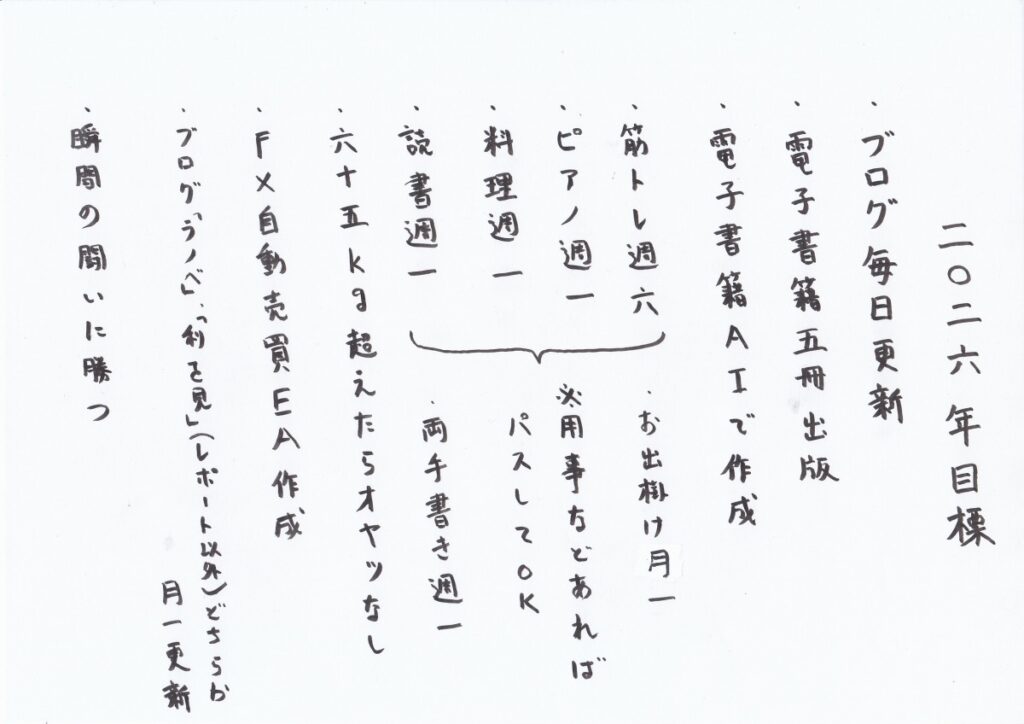 二〇二六年目標
・ブログ毎日更新
・電子書籍五冊出版
・電子書籍AIで作成
・筋トレ週六
・お出掛け月一
・ピアノ週一
※用事などあれば
パスしてOK
・料理週一
・読書週一
・両手書き週一
・六十五kg超えたらオヤツなし
・FX自動売買EA作成
・ブログ「ラノベ」、「利を見」(レポート以外)どちらか
月一更新
・瞬間の闘いに勝つ